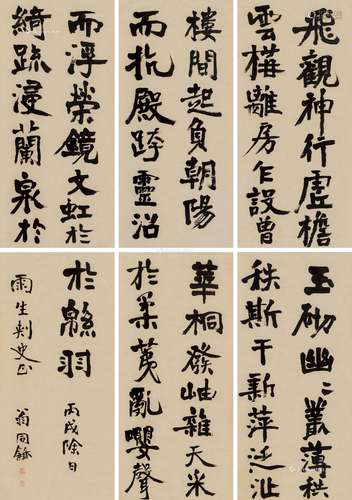 飛觀神行虛檐
雲構離房乍設曾
樓間起負朝陽
而抗殿跨靈沼
而浮榮鏡文虹於
綺疏浸蘭泉於
玉砌幽〻叢薄秩
秩斯干新萍泛沚
華桐發岫雜夭采
於柔荑亂嚶聲
於緜羽 丙戌除日
雨生刺史正 翁同龢